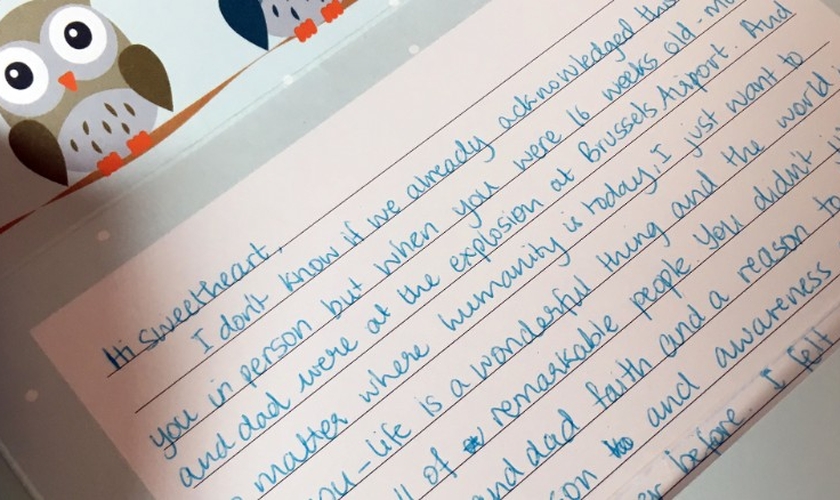 Hi sweetheart,
I don't know if we already acknowledged this
you in person but when you were 16 weeks old - mo
and dad were at the explosion at Brussels Airport. And
matter where humanity is today, I just want to
you - life is a wonderful thing and the world
ll of remarkable people. You didn't
and dad faith and a reason to
son and awareness
er before. I felt